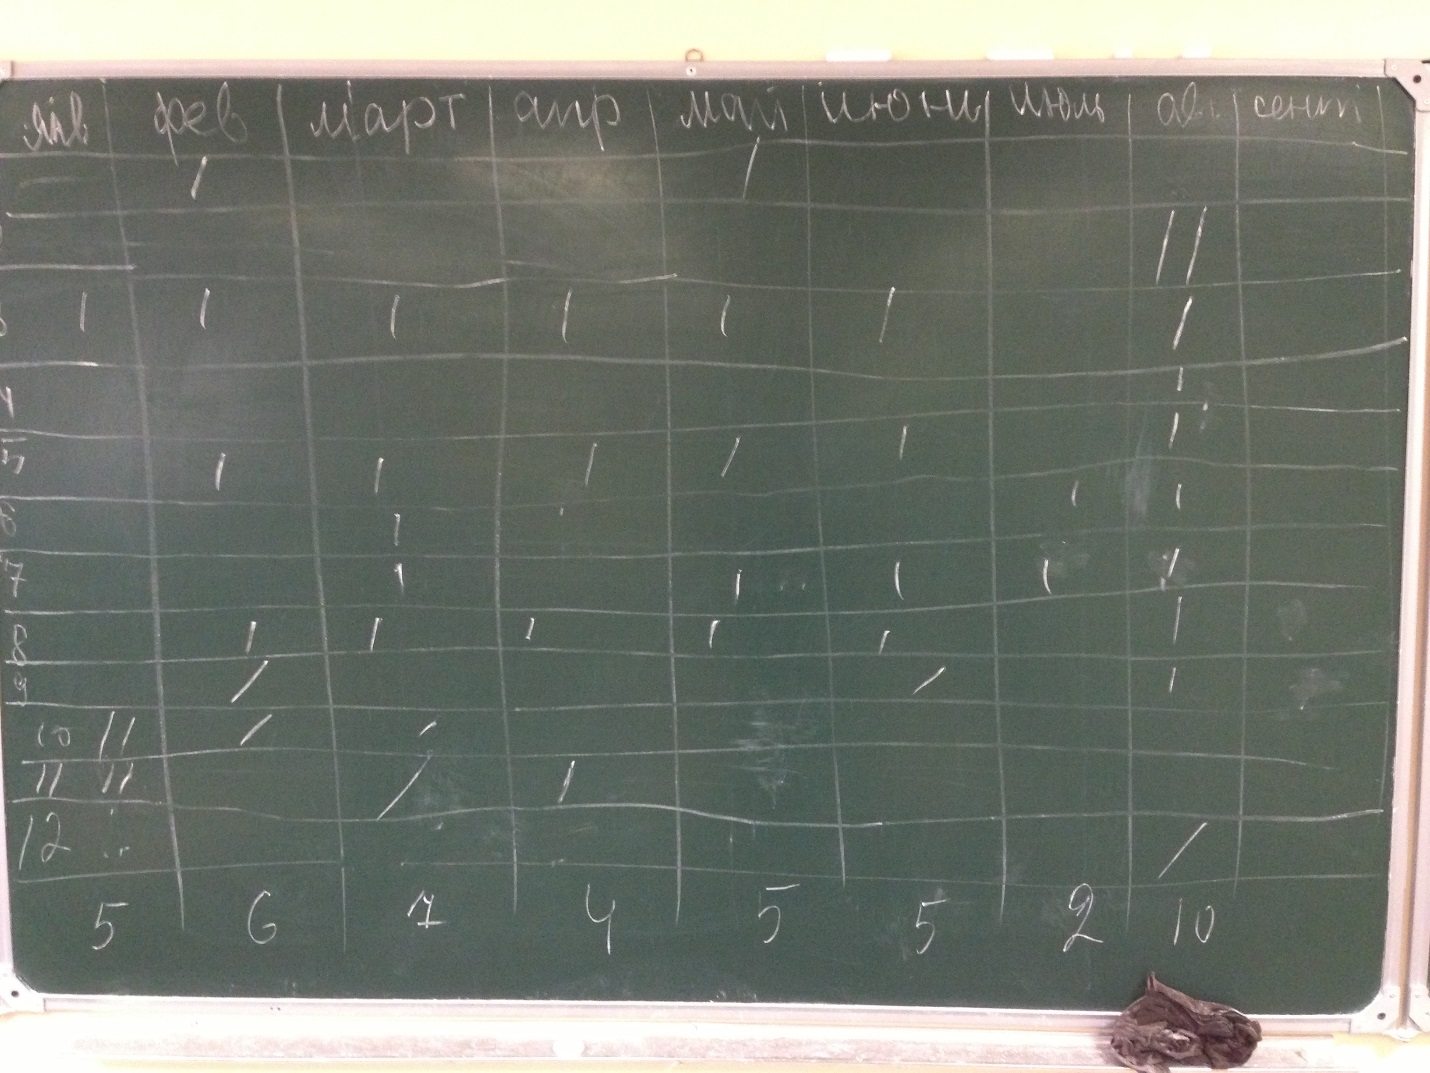 янв фев март апр май июнь июль ав сент
— / /
//
3 / / / / / / /
4 /
5 / / / / / /
6 / / /
7 / / / / /
8 / / / / / /
9 / / /
10 // / /
11 // / /
12 /
5 6 7 4 5 5 2 10